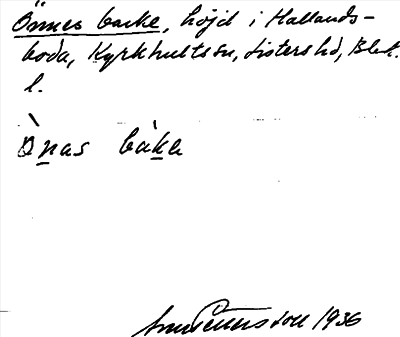 Önnes backe, höjd i Hallands-
boda, Kyrkhultssn, Listers hd, Blek.
l.
Ònas bàke
1936